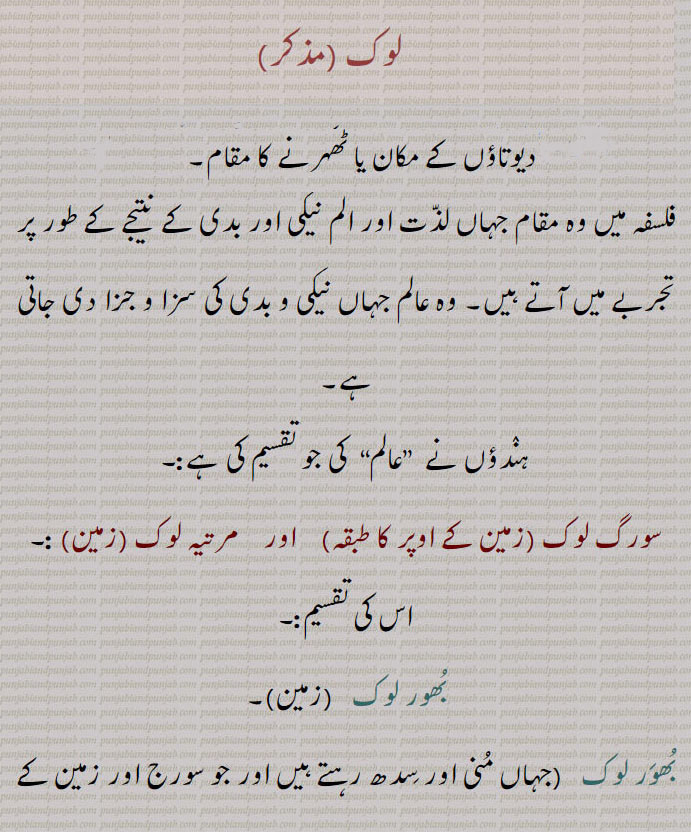 لوک (مذکر)
دیوتاؤں کے مکان یا ٹھَہرنے کا مقام۔
فلسفہ میں وہ مقام جہاں لذّت اور الم نیکی اور بدی کے نتیجے کے طور پر
تجربے میں آتے ہیں۔ وہ عالم جہاں نیکی و بدی کی سزا و جزا دی جاتی
ہے۔
ہنْدوؤں نے ”عالم“ کی جو تقسیم کی ہے:۔
سورگ لوک (زمین کے اوپر کا طبقہ) اور مرتیہ لوک (زمین) :۔
اس کی تقسیم:۔
بُھور لوک (زمین)۔
بُھوَر لوک (جہاں مُنی اور سِدھ رہتے ہیں اور جو سورج اور زمین کے